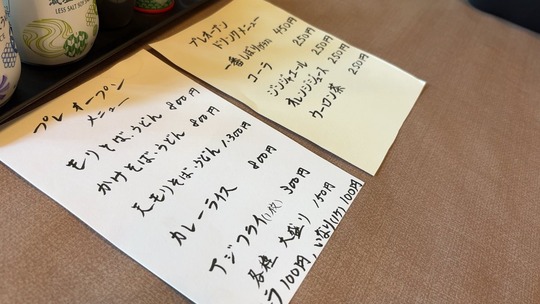 LESS SALT SOY
プレオープン
メニュー
もりそば、うどん 800円
かけそば、うどん 800円
天もりそば、うどん 1,300円
カレーライス 800円
アジフライ(1枚) 300円
各種 大盛り 150円
100円、いなり(1ケ)100円
プレオープン
ドリンクメニュー
一番しぼり 450円
コーラ 250円
ジンジャエール 250円
オレンジジュース 250円
ウーロン茶 250円